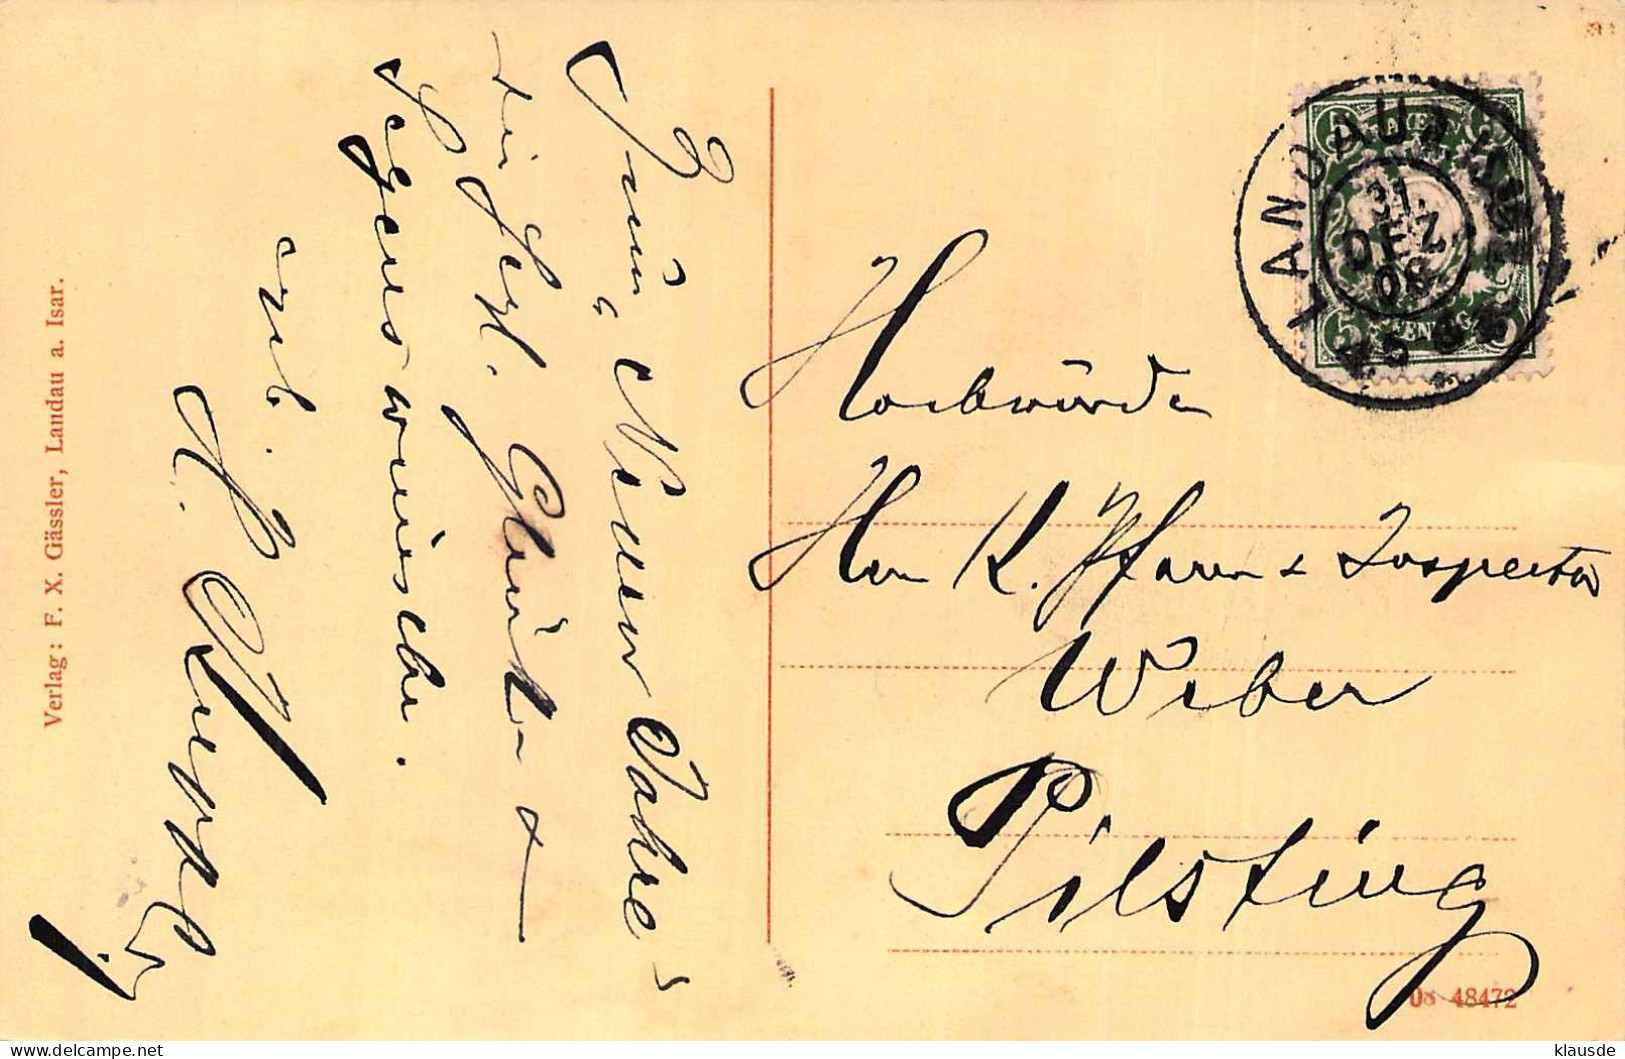 Zum neuen Jahre
die herzl. Glück- &
Segenswünsche.
erg.
Verlag: F. X. Gässler, Landau a. Isar.
LANDAU A. ISAR
31.
DEZ
08
BAYERN
5 PFENNIG 5
Hochwürden
Herrn K. Pfarrer & Inspector
Weber
Pilsting
08 48472
klausde